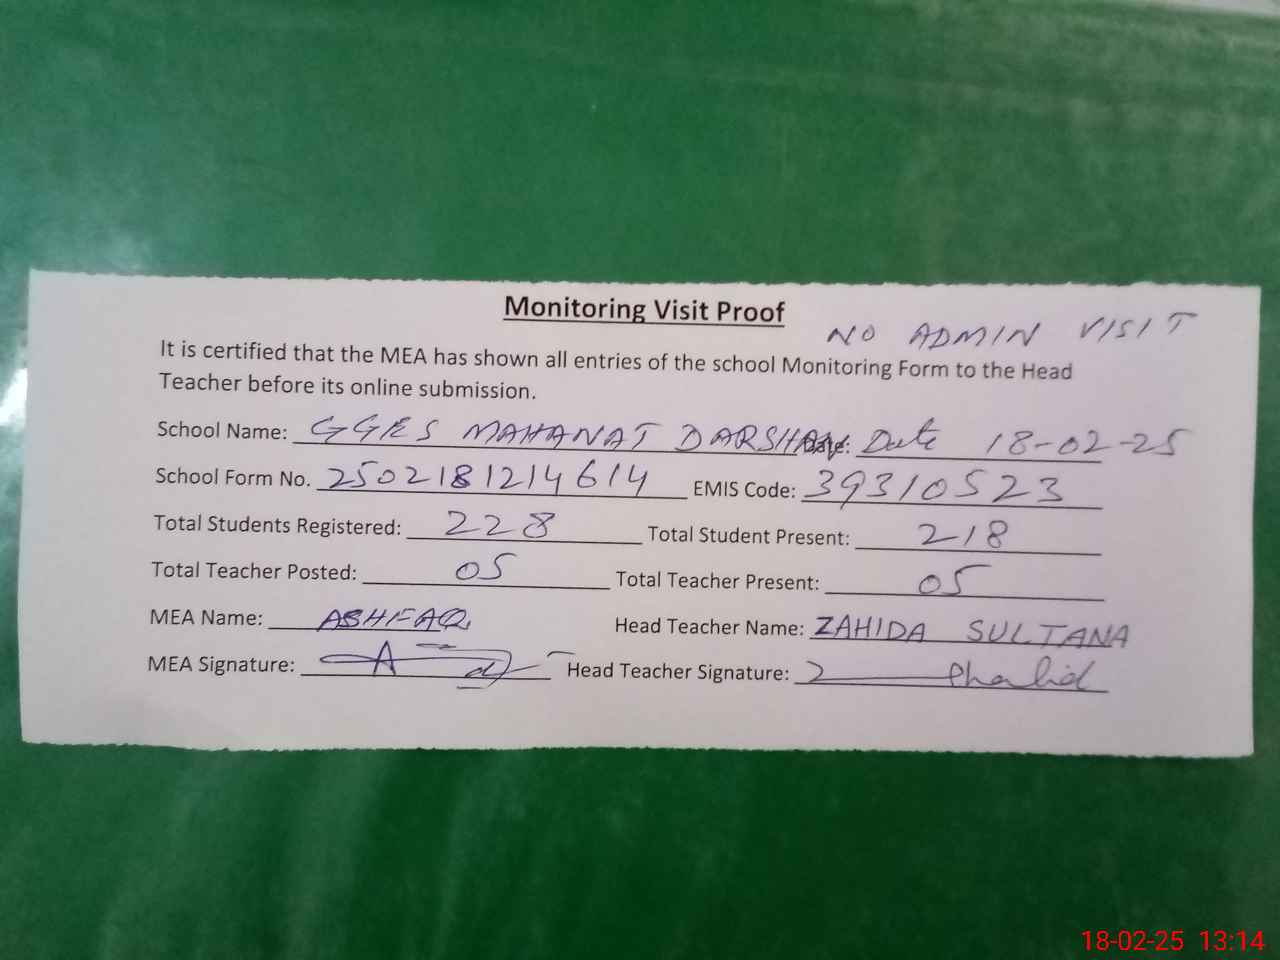 Monitoring Visit Proof
NO ADMIN VISIT
It is certified that the MEA has shown all entries of the school Monitoring Form to the Head
Teacher before its online submission.
School Name: GGES MAHANAT DARSHAN Date: Date 18-02-25
School Form No. 2502181214614 EMIS Code: 39310523
Total Students Registered: 228 Total Student Present: 218
Total Teacher Posted: 05 Total Teacher Present: 05
MEA Name: ASHFAQ Head Teacher Name: ZAHIDA SULTANA
MEA Signature: Head Teacher Signature:
18-02-25 13:14